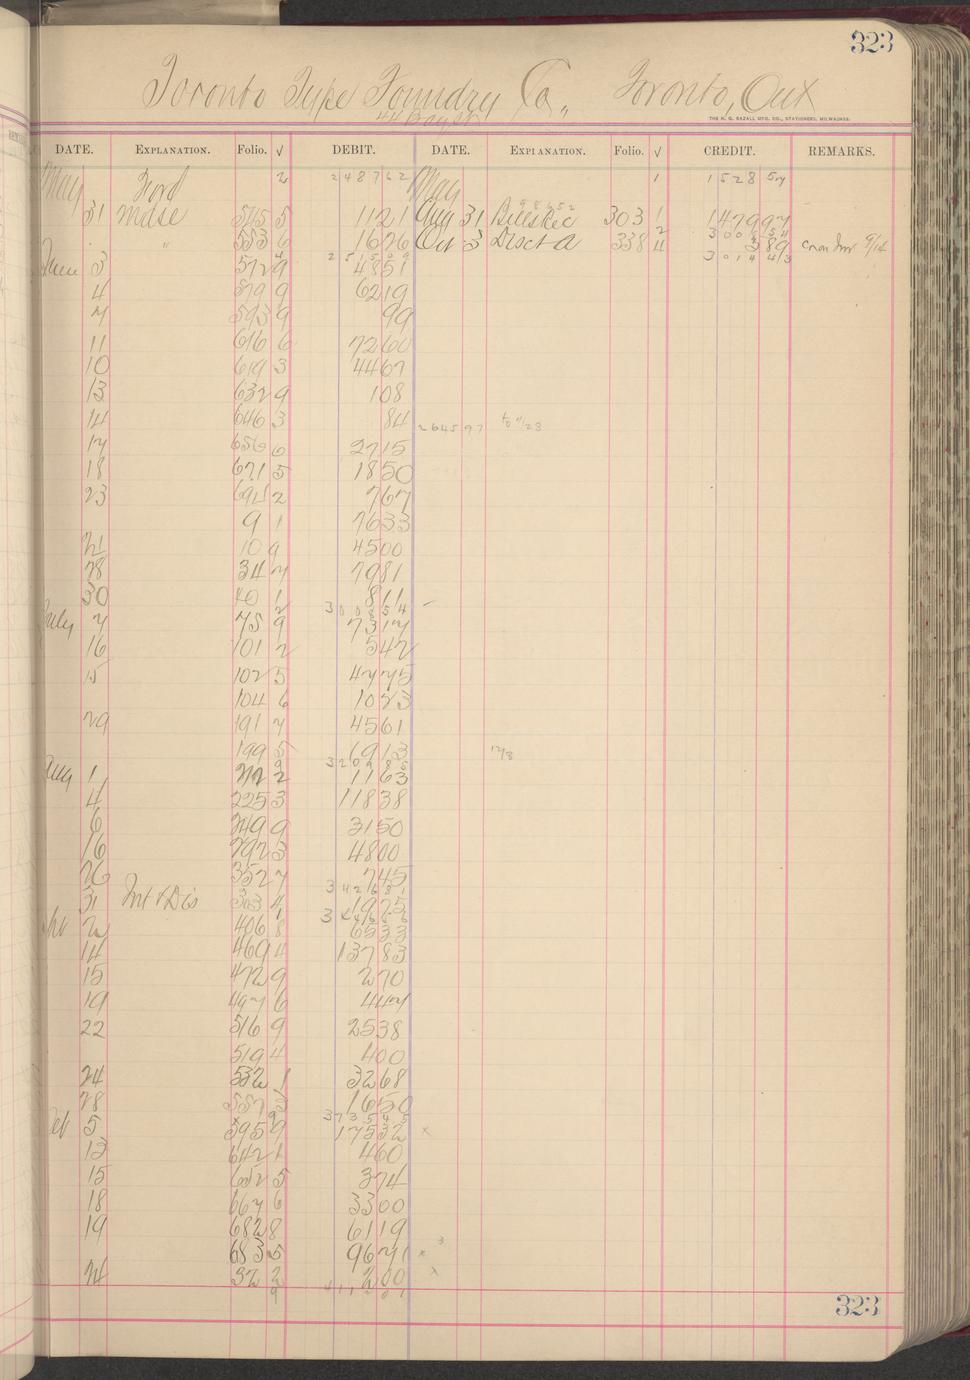 323
Toronto Type Foundry Co., Toronto, Ont
44 Bay St
THE H. G. RAZALL MFG. CO., STATIONERS, MILWAUKEE.
DATE. EXPLANATION. Folio. √ DEBIT. DATE. EXPLANATION. Folio. √ CREDIT. REMARKS.
May Ford 2 2487 62 May 1 1528 57
31 Mdse 545 5 11 21 Aug 31 Bills Rec 303 1 1479 97
" 553 6 16 26 Oct 3 Disct a 338 4 3 89 9/14
2515 09 3014 43
June 3 572 9 48 51
4 579 9 62 19
7 593 9 99
11 616 6 72 60
10 619 3 44 67
13 632 9 1 08
14 646 3 84 2645 97
17 656 6 27 15
18 671 5 18 50
23 694 2 7 67
9 1 76 33
10 9 45 00
28 34 7 79 81
30 40 1 8 11
3008 54
July 7 75 9 73 17
16 101 2 5 42
15 102 5 47 75
104 6 10 23
29 191 7 45 61
199 5 69 13 12/8
3209 85
Aug 1 212 2 11 63
4 225 3 118 38
6 249 9 31 50
16 292 3 48 00
26 352 7 7 45
3426 81
31 Int & Dis 303 4 19 75
2 406 8 65 33
14 469 4 137 83
15 472 9 2 70
19 497 6 4 47
22 516 9 25 38
519 4 4 00
24 532 1 32 68
28 557 3 16 50
3735 45
5 595 9 175 32 x
13 642 1 4 60
15 652 5 3 74
18 667 6 33 00
19 682 8 61 19
683 5 96 71 x
24 32 2 2 00 x
323